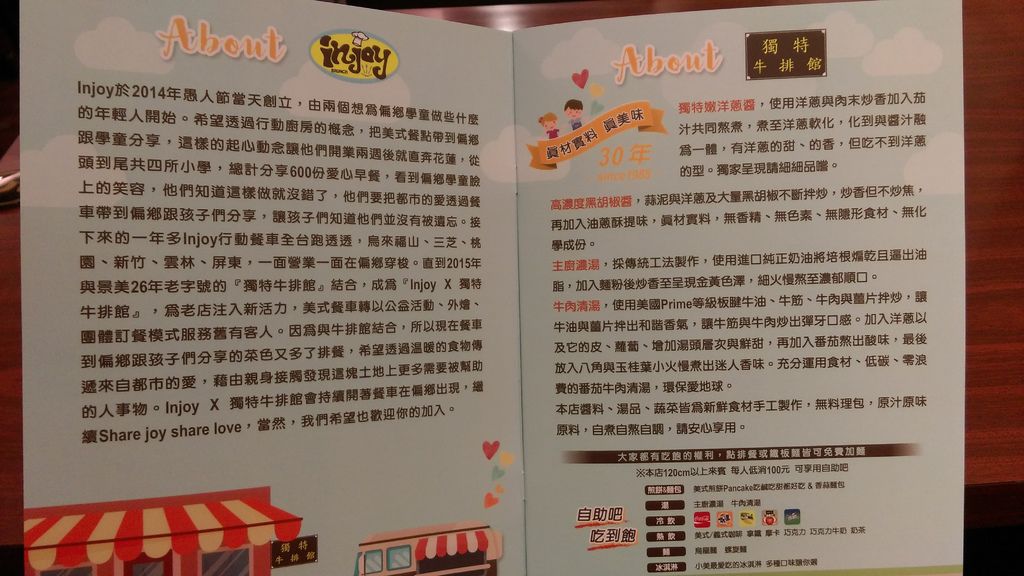 About
injoy
BRUNCH
Injoy於2014年愚人節當天創立，由兩個想為偏鄉學童做些什麼
的年輕人開始。希望透過行動廚房的概念，把美式餐點帶到偏鄉
跟學童分享，這樣的起心動念讓他們開業兩週後就直奔花蓮，從
頭到尾共四所小學，總計分享600份愛心早餐，看到偏鄉學童臉
上的笑容，他們知道這樣做就沒錯了，他們要把都市的愛透過餐
車帶到偏鄉跟孩子們分享，讓孩子們知道他們並沒有被遺忘。接
下來的一年多Injoy行動餐車全台跑透透，烏來福山、三芝、桃
園、新竹、雲林、屏東，一面營業一面在偏鄉穿梭。直到2015年
與景美26年老字號的『獨特牛排館』結合，成為『Injoy X 獨特
牛排館』，為老店注入新活力，美式餐車轉以公益活動、外燴、
團體訂餐模式服務舊有客人。因為與牛排館結合，所以現在餐車
到偏鄉跟孩子們分享的菜色又多了排餐，希望透過溫暖的食物傳
遞來自都市的愛，藉由親身接觸發現這塊土地上更多需要被幫助
的人事物。Injoy X 獨特牛排館會持續開著餐車在偏鄉出現，繼
續Share joy share love，當然，我們希望也歡迎你的加入。
獨特
牛排館
About
獨特
牛排館
真材實料 真美味
30年
since1985
獨特嫩洋蔥醬，使用洋蔥與肉末炒香加入茄
汁共同熬煮，煮至洋蔥軟化，化到與醬汁融
為一體，有洋蔥的甜、的香，但吃不到洋蔥
的型。獨家呈現請細細品嚐。
高濃度黑胡椒醬，蒜泥與洋蔥及大量黑胡椒不斷拌炒，炒香但不炒焦，
再加入油蔥酥提味，真材實料，無香精、無色素、無隱形食材、無化
學成份。
主廚濃湯，採傳統工法製作，使用進口純正奶油將培根煸乾且逼出油
脂，加入麵粉後炒香至呈現金黃色澤，細火慢熬至濃郁順口。
牛肉清湯，使用美國Prime等級板腱牛油、牛筋、牛肉與薑片拌炒，讓
牛油與薑片拌出和諧香氣，讓牛筋與牛肉炒出彈牙口感。加入洋蔥以
及它的皮、蘿蔔、增加湯頭層次與鮮甜，再加入番茄熬出酸味，最後
放入八角與玉桂葉小火慢煮出迷人香味。充分運用食材、低碳、零浪
費的番茄牛肉清湯，環保愛地球。
本店醬料、湯品、蔬菜皆為新鮮食材手工製作，無料理包，原汁原味
原料，自煮自熬自調，請安心享用。
大家都有吃飽的權利，點排餐或鐵板麵皆可免費加麵
※本店120cm以上來賓 每人低消100元 可享用自助吧
自助吧
吃到飽
煎餅&麵包 美式煎餅Pancake吃鹹吃甜都好吃 & 香蒜麵包
湯 主廚濃湯 牛肉清湯
冷飲
熱飲 美式/義式咖啡 拿鐵 摩卡 巧克力 巧克力牛奶 奶茶
麵 烏龍麵 螺旋麵
冰淇淋 小美最愛吃的冰淇淋 多種口味隨你選